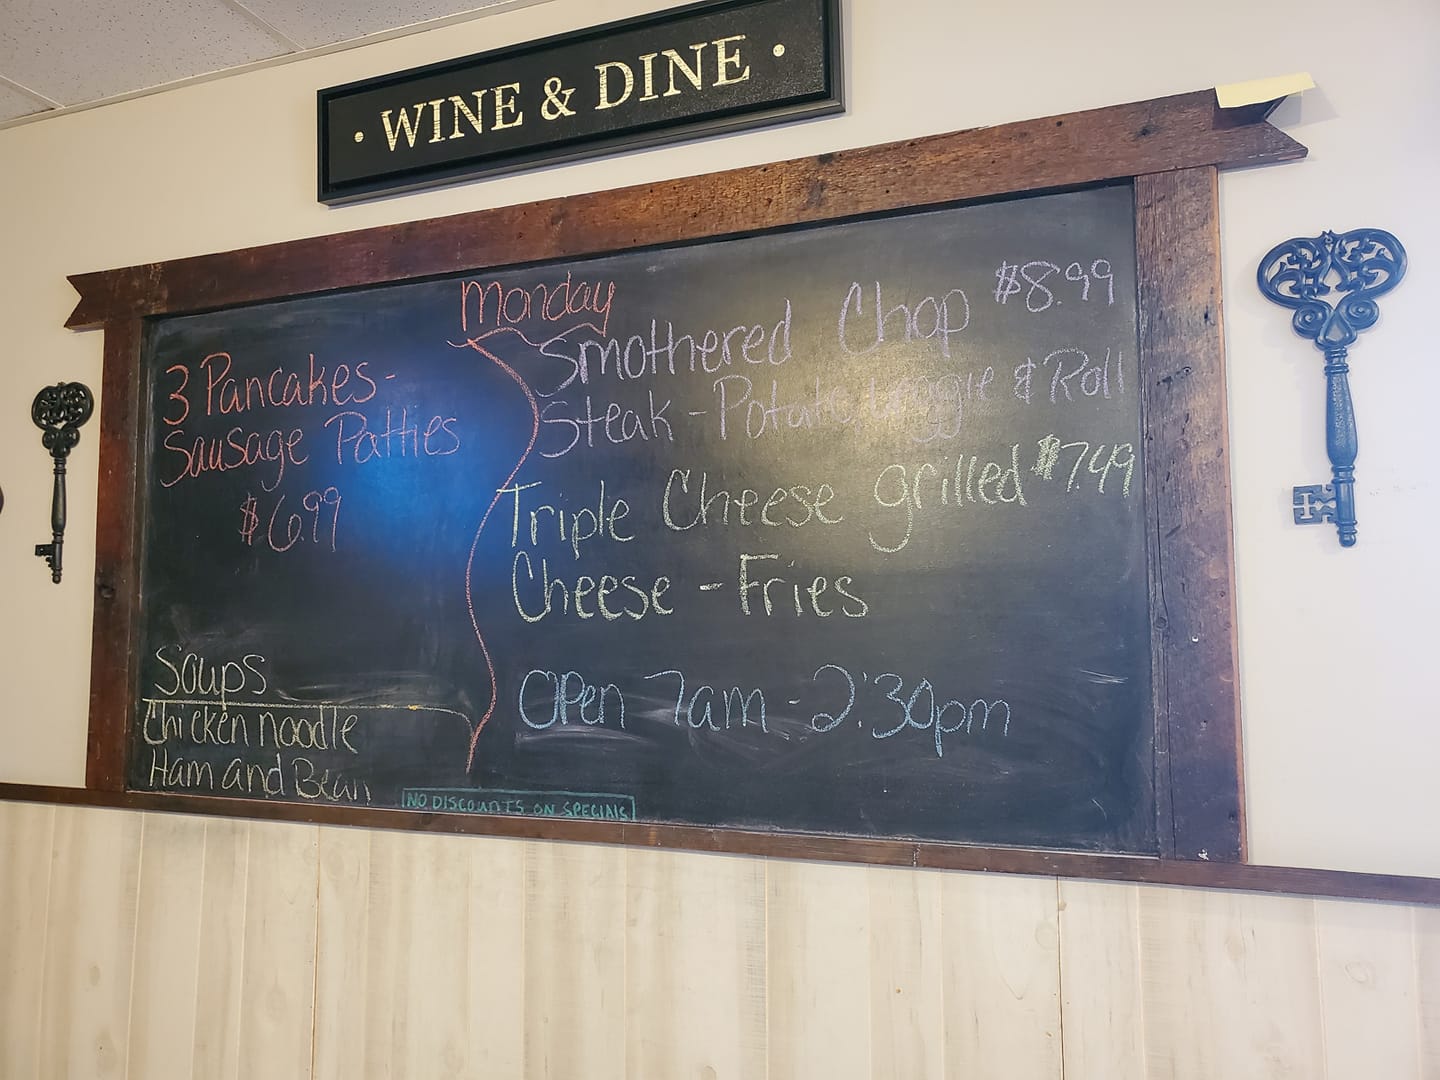 · WINE & DINE ·
Monday
3 Pancakes-
Sausage Patties
$6.99
Soups
Chicken noodle
Ham and Bean
Smothered Chop $8.99
Steak - Potato veggie & Roll
Triple Cheese grilled $7.49
Cheese - Fries
Open 7am - 2:30pm
NO DISCOUNTS ON SPECIALS